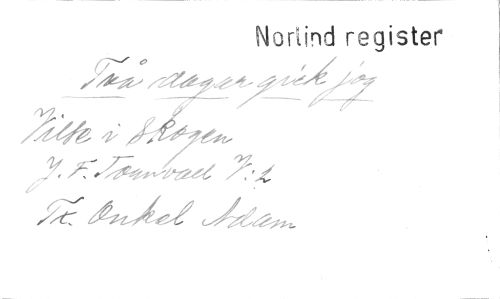 Norlind register
Två dagar gick jag
Vilse i Skogen
J. F. Törnvall V:2
Tx. Onkel Adam